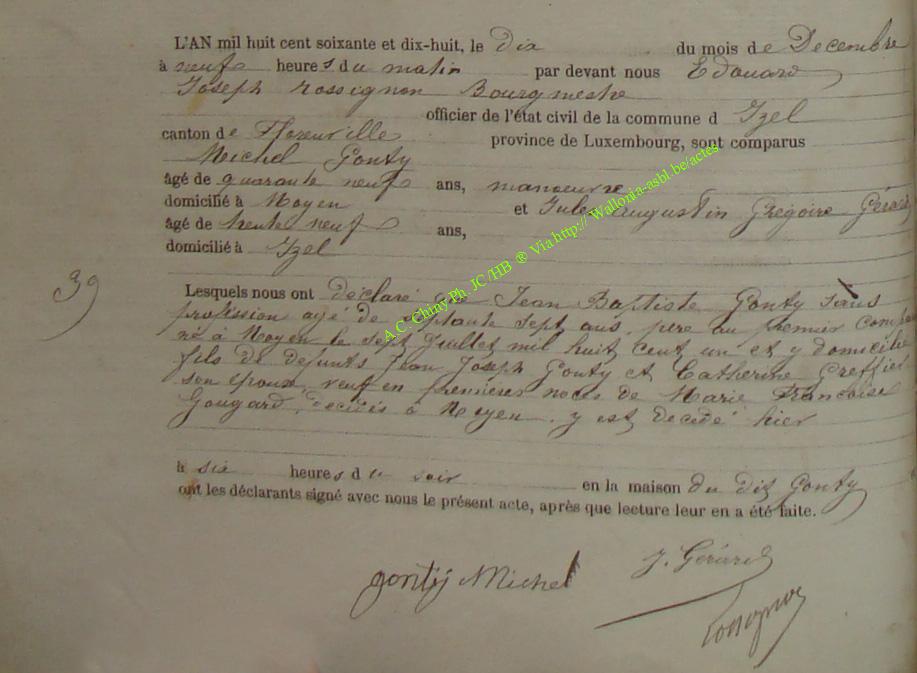 L'AN mil huit cent soixante et dix-huit, le dix du mois de Decembre
à neuf heures du matin par devant nous Edouard
Joseph rossignon Bourgmestre
officier de l'état civil de la commune d Izel
canton de Florenville province de Luxembourg, sont comparus
Michel Gonty
âgé de quarante neuf ans, manoeuvre
domicilié à Moyen et Jules augustin Grégoire Gérard
âgé de trente neuf ans,
domicilié à Izel
39
Lesquels nous ont déclaré que Jean Baptiste Gonty sans
profession agé de septante sept ans, pere au premier comp
né à Moyen le sept Juillet mil huit cent un et y domicilié
fils de defunts Jean Joseph Gonty et Catherine Greffier
son époux, veuf en premières noces de Marie Francoise
Gougard, décidés à Moyen, y est decedé hier
à six heures du soir en la maison du dit Gonty
ont les déclarants signé avec nous le présent acte, après que lecture leur en a été faite.
gontij Michel J. Gérard
rossignon
A.C. Chiny Ph. JC/HB ® Via http://Wallonia-asbl.be/actes